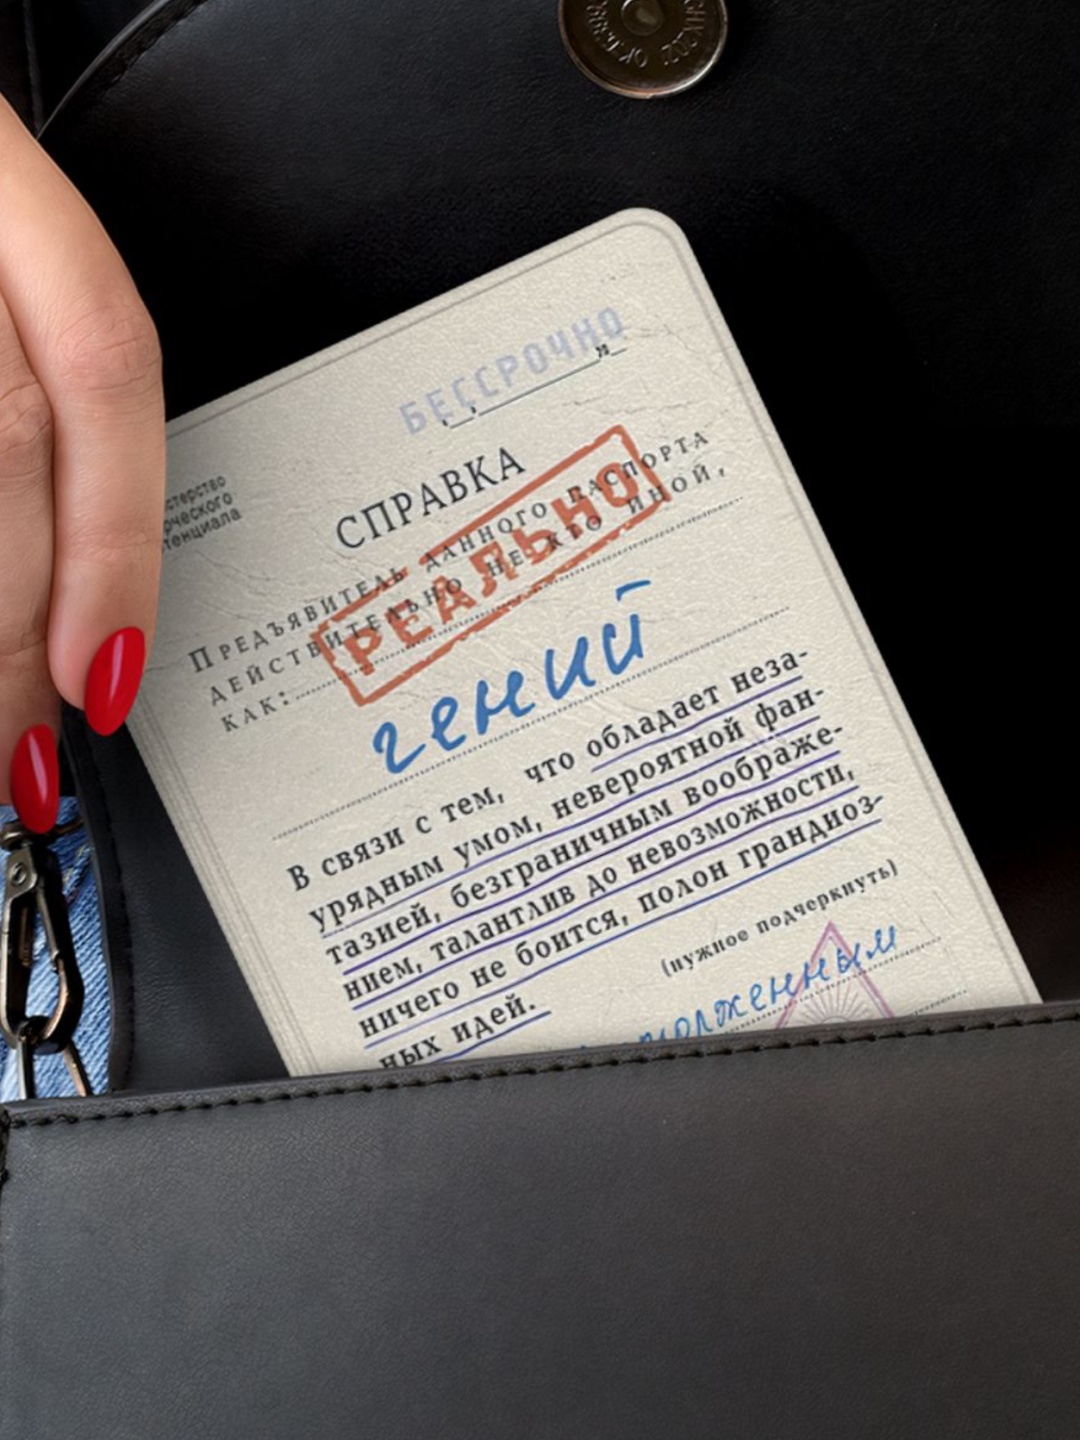 БЕССРОЧНО
СПРАВКА
ПРЕДЪЯВИТЕЛЬ ДАННОГО ПАСПОРТА
ДЕЙСТВИТЕЛЬНО НЕ КТО ИНОЙ,
КАК:
РЕАЛЬНО
гений
В связи с тем, что обладает неза-
урядным умом, невероятной фан-
тазией, безграничным воображе-
нием, талантлив до невозможности,
ничего не боится, полон грандиоз-
ных идей.
(нужное подчеркнуть)